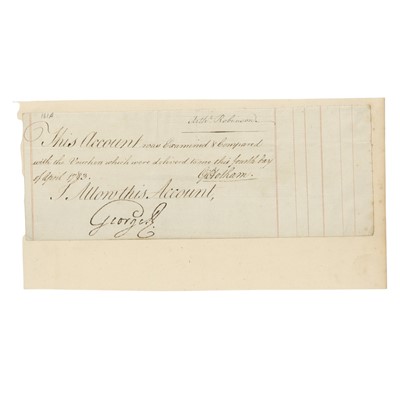 This Account was Examined & Compared
with the Vouchers which were delivered to me this fourth day
of April 1783.
I Allow this Account,
George R